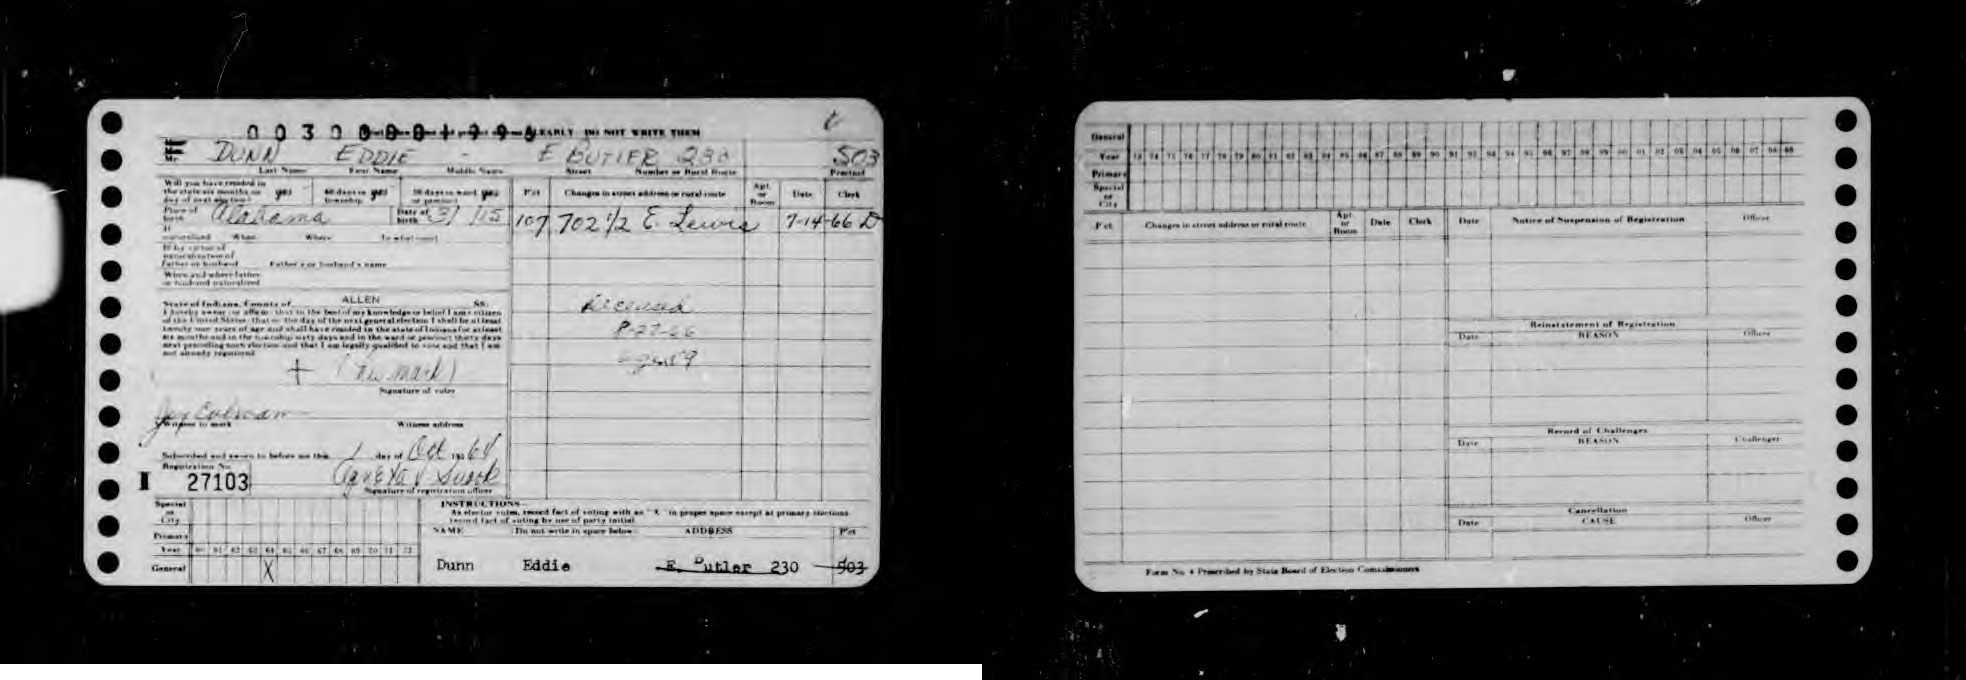 CLEARLY DO NOT WRITE THEM
Mr. DUNN EDDIE - E BUTLER 230 503
Last Name First Name Middle Name Street Number or Rural Route Precinct
Will you have resided in the state six months on day of next election? yes 60 days in township yes 30 days in ward or precinct yes
Pct Changes in street address or rural route Apt. or Room Date Clerk
Place of birth Alabama Date of birth
107 702 1/2 E Lewis 7-14-66 D
If naturalized When Where In what court
If by virtue of naturalization of father or husband Father's or husband's name
When and where father or husband naturalized
State of Indiana, County of ALLEN SS:
I hereby swear or affirm that to the best of my knowledge or belief I am a citizen
of the United States; that on the day of the next general election I shall be at least
twenty-one years of age and shall have resided in the state of Indiana for at least
six months and in the township sixty days and in the ward or precinct thirty days
next preceding such election and that I am legally qualified to vote and that I am
not already registered
Deceased
+ (his mark)
Signature of voter
Witness to mark Witness address
Subscribed and sworn to before me this 1 day of Oct 1964
Registration No.
I 27103
Signature of registration officer
Special or City
Primary
Year 60 61 62 63 64 65 66 67 68 69 70 71 72
General X
INSTRUCTIONS
As elector votes, record fact of voting with an "X" in proper space except at primary elections
record fact of voting by use of party initial
NAME Do not write in space below ADDRESS Pct
Dunn Eddie E. Butler 230 503
General
Year 73 74 75 76 77 78 79 80 81 82 83 84 85 86 87 88 89 90 91 92 93 94 95 96 97 98 99 00 01 02 03 04 05 06 07 08 09
Primary
Special or City
Pct Changes in street address or rural route Apt. or Room Date Clerk
Date Notice of Suspension of Registration Officer
Reinstatement of Registration
Date REASON Officer
Record of Challenges
Date REASON Challenger
Cancellation
Date CAUSE Officer
Form No. 4 Prescribed by State Board of Election Commissioners